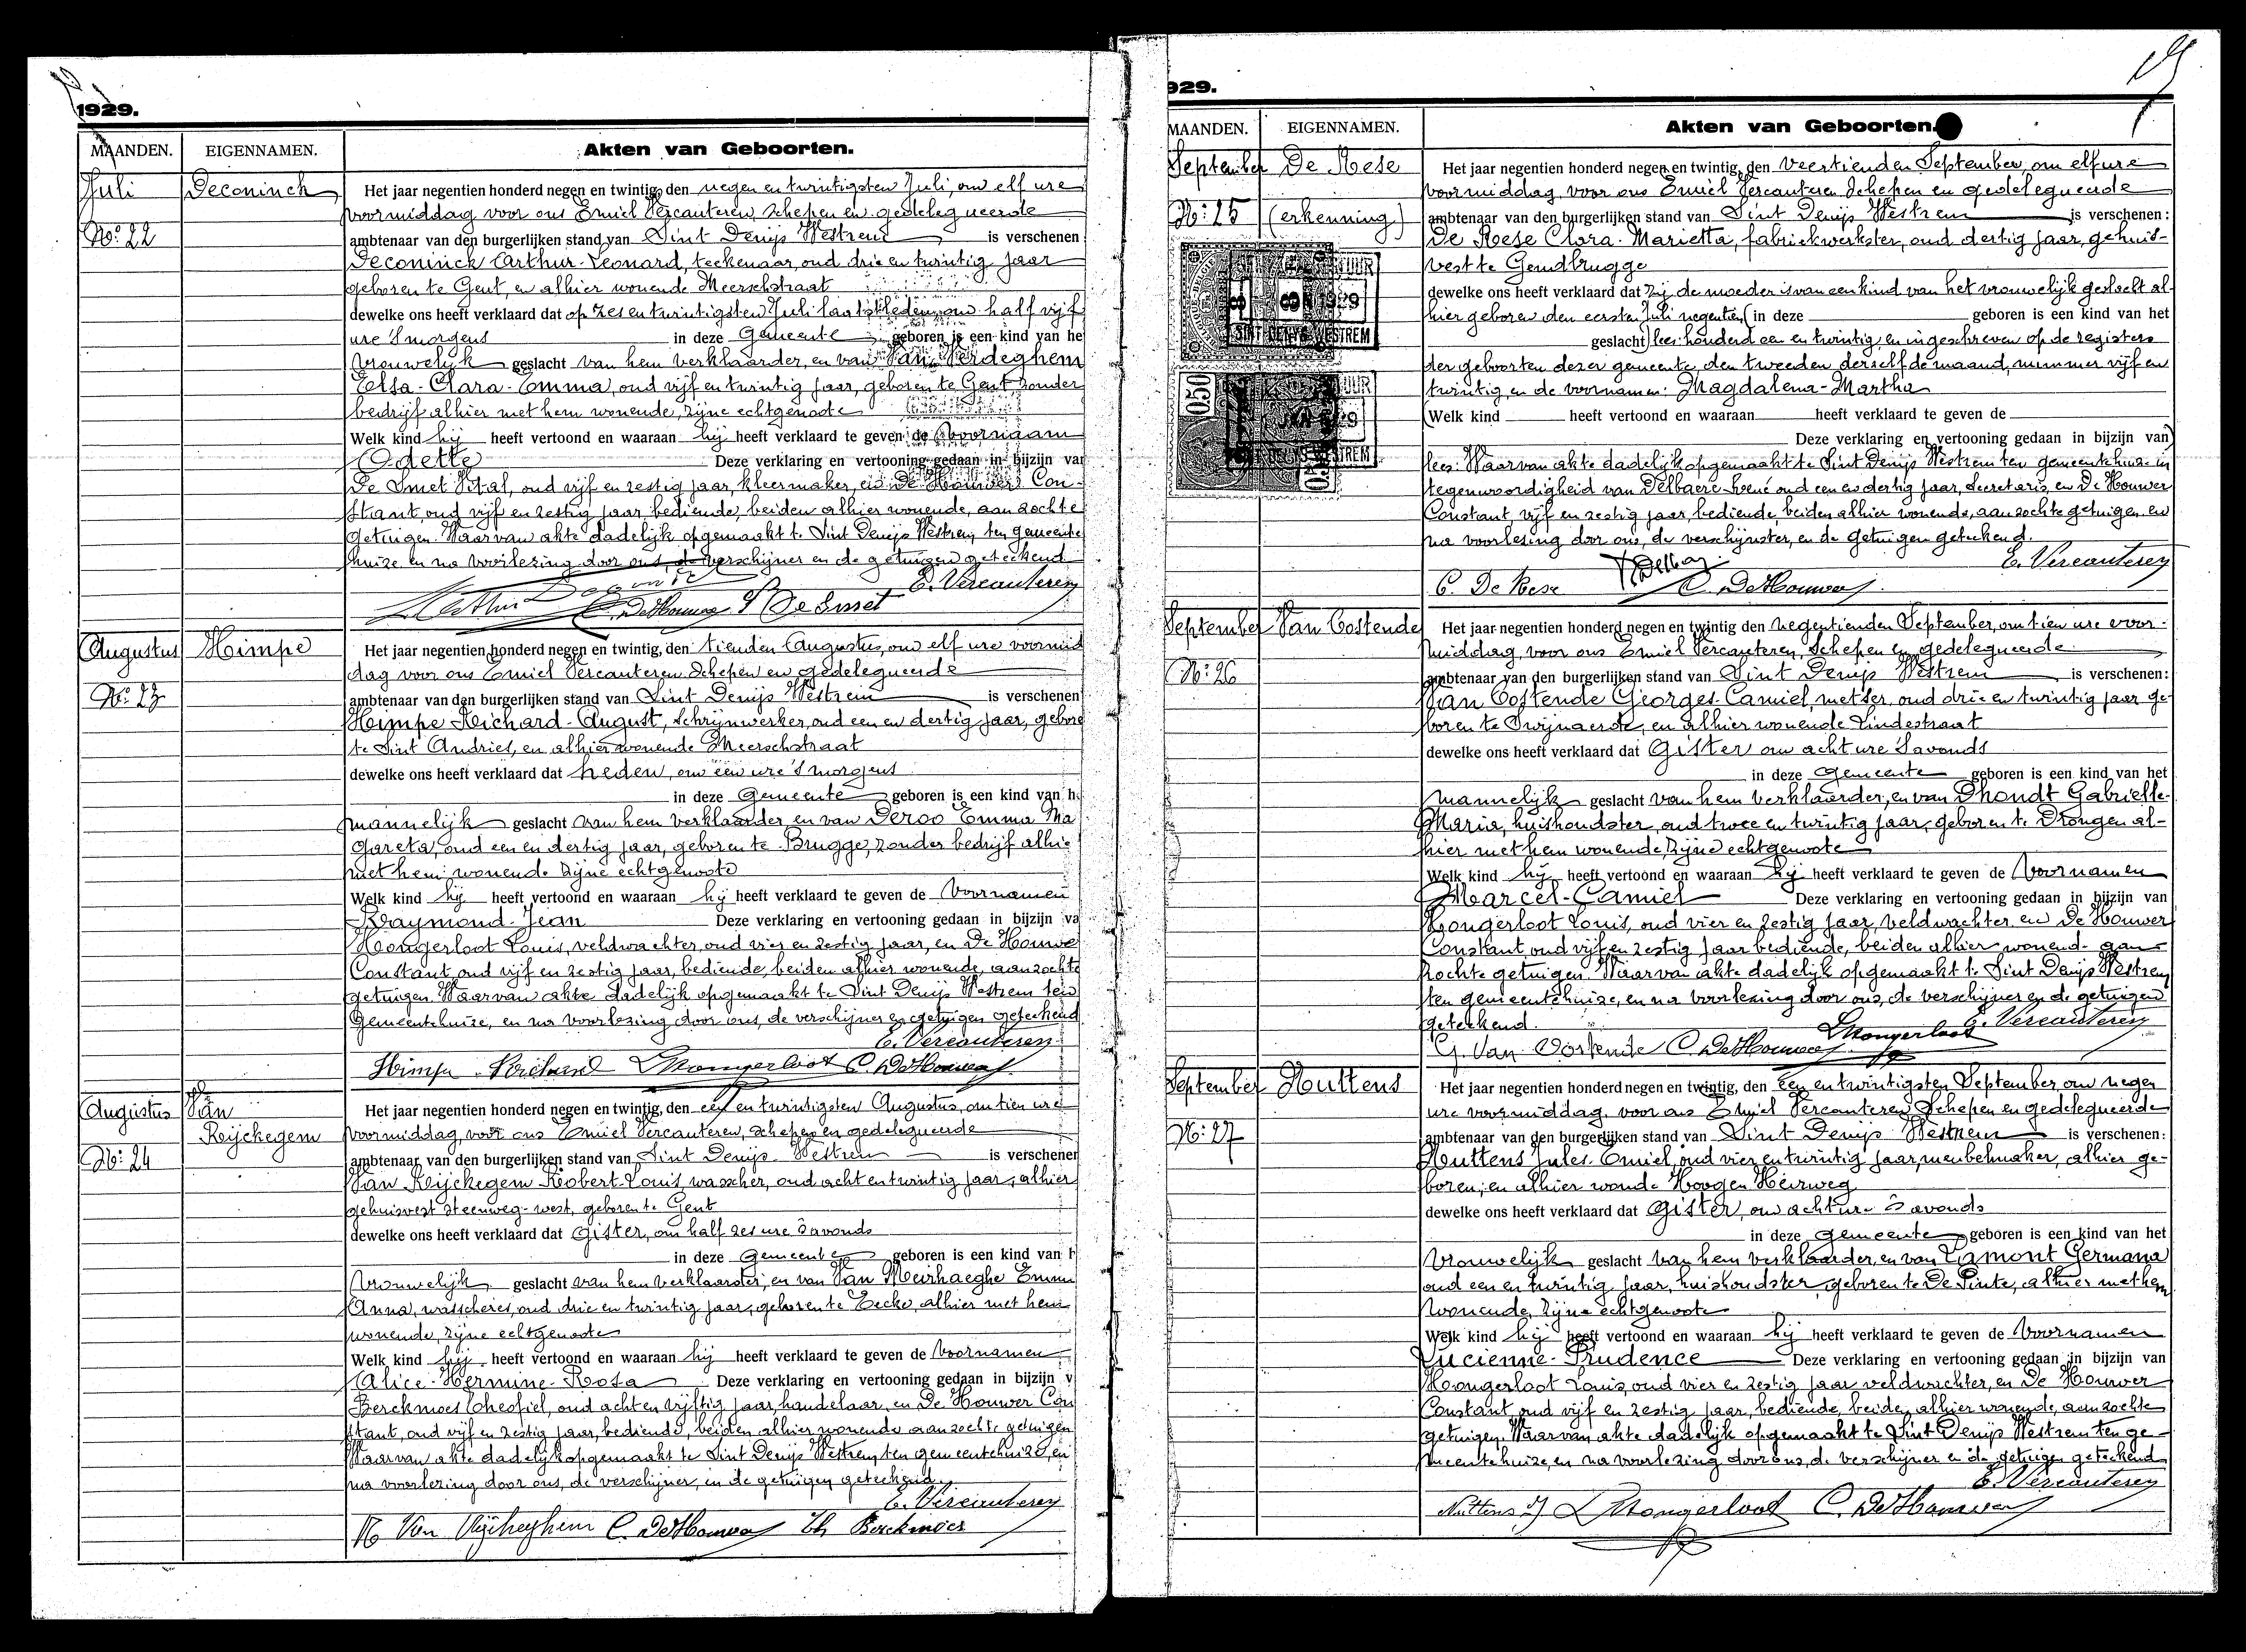 1929.
MAANDEN. EIGENNAMEN. Akten van Geboorten.
Juli Deconinck Het jaar negentien honderd negen en twintig, den negen en twintigsten Juli, om elf ure
voormiddag voor ons Emiel Vercauteren, schepen en gedelegueerde
No: 22 ambtenaar van den burgerlijken stand van Sint Denijs Westrem is verschenen
Deconinck Arthur-Leonard, teekenaar, oud drie en twintig jaar
geboren te Gent, en alhier wonende Meerschstraat
dewelke ons heeft verklaard dat op zes en twintigsten Juli laatstleden, om half vijf
ure 's morgens in deze Gemeente geboren is een kind van he
vrouwelijk geslacht van hem verklaarder, en van Van Verdeghem
Elsa-Clara-Emma, oud vijf en twintig jaar, geboren te Gent zonder
bedrijf alhier met hem wonende, zijne echtgenoote
Welk kind hij heeft vertoond en waaraan hij heeft verklaard te geven de voornaam
Odette Deze verklaring en vertooning gedaan in bijzijn van
De Smet Vital, oud vijf en zestig jaar, kleermaker, en De Houwer Con-
stant, oud vijf en zestig jaar, bediende, beiden alhier wonende, aanzochte
getuigen. Waarvan akte dadelijk opgemaakt te Sint Denijs Westrem, ten gemeente
huize en na voorlezing door ons de verschijner en de getuigen geteekend
E. Vercauteren
Arthur Deconinck C. DeHouwer V De Smet
Augustus Himpe Het jaar negentien honderd negen en twintig, den tienden Augustus, om elf ure voormid
dag voor ons Emiel Vercauteren Schepen en gedelegueerde
No: 23 ambtenaar van den burgerlijken stand van Sint Denijs Westrem is verschenen
Himpe Richard-August, Schrijnwerker, oud een en dertig jaar, gebore
te Sint Andries, en alhier wonende Meerschstraat
dewelke ons heeft verklaard dat heden, om één ure 's morgens
in deze Gemeente geboren is een kind van h
mannelijk geslacht van hem verklaarder en van Deroo Emma Ma
gareta, oud een en dertig jaar, geboren te Brugge, zonder bedrijf alhie
met hem wonende zijne echtgenoote
Welk kind hij heeft vertoond en waaraan hij heeft verklaard te geven de Voornamen
Raymond-Jean Deze verklaring en vertooning gedaan in bijzijn va
Hongerloot Louis, veldwachter, oud vier en zestig jaar, en De Houwe
Constant, oud vijf en zestig jaar, bediende, beiden alhier wonende, aanzochte
getuigen. Waarvan akte dadelijk opgemaakt te Sint Denijs Westrem ten
Gemeentehuize, en na voorlezing door ons, de verschijner en getuigen geteekend
E. Vercauteren
Himpe Richard L Hongerloot C. DeHouwer
Augustus Van Het jaar negentien honderd negen en twintig, den een en twintigsten Augustus, om tien ure
Reijckegem voormiddag, voor ons Emiel Vercauteren, schepen en gedelegueerde
No: 24 ambtenaar van den burgerlijken stand van Sint Denijs Westrem is verschenen
Van Reijckegem Robert-Louis, wasscher, oud acht en twintig jaar, alhier
gehuisvest Steenweg-west, geboren te Gent
dewelke ons heeft verklaard dat Gister, om half zes ure 's avonds
in deze Gemeente geboren is een kind van h
vrouwelijk geslacht van hem verklaarder, en van Van Meirhaeghe Emma
Anna, wasscheres, oud drie en twintig jaar, geboren te Eecke, alhier met hem
wonende, zijne echtgenoote
Welk kind hij heeft vertoond en waaraan hij heeft verklaard te geven de Voornamen
Alice-Hermine-Rosa Deze verklaring en vertooning gedaan in bijzijn v
Berckmoes Theofiel, oud acht en vijftig jaar, handelaar, en De Houwer Con
stant, oud vijf en zestig jaar, bediende, beiden alhier wonende aanzochte getuigen
Waarvan akte dadelijk opgemaakt te Sint Denijs Westrem, ten gemeentehuize, en
na voorlezing door ons, de verschijner, en de getuigen geteekend
E. Vercauteren
R Van Rijckeghem C. DeHouwer Th Berckmoes
929.
MAANDEN. EIGENNAMEN. Akten van Geboorten.
September De Rese Het jaar negentien honderd negen en twintig, den veertienden September, om elf ure
voormiddag, voor ons Emiel Vercauteren Schepen en gedelegueerde
No: 25 (erkenning) ambtenaar van den burgerlijken stand van Sint Denijs Westrem is verschenen:
De Reese Clara-Marietta, fabriekwerkster, oud dertig jaar, gehuis-
vest te Gendbrugge
dewelke ons heeft verklaard dat zij de moeder is van een kind van het vrouwelijk geslacht al-
hier geboren den eersten Juli negentien (in deze geboren is een kind van het
geslacht) lees: honderd een en twintig, en ingeschreven op de registers
der geboorten dezer gemeente, den tweeden derzelfde maand, nummer vijf en
twintig, en de voornamen: Magdalena-Martha
(Welk kind heeft vertoond en waaraan heeft verklaard te geven de
Deze verklaring en vertooning gedaan in bijzijn van)
lees: Waarvan akte dadelijk opgemaakt te Sint Denijs Westrem ten gemeentehuize in
tegenwoordigheid van Delbaere René oud een en dertig jaar, Secretaris, en De Houwer
Constant, vijf en zestig jaar, bediende, beiden alhier wonende, aanzochte getuigen en
na voorlezing door ons, de verschijnster, en de Getuigen geteekend.
E. Vercauteren
C. De Rese C. DeHouwer
September Van Oostende Het jaar negentien honderd negen en twintig den negentienden September, om tien ure voor-
middag, voor ons Emiel Vercauteren, Schepen en gedelegueerde
No: 26 ambtenaar van den burgerlijken stand van Sint Denijs Westrem is verschenen:
Van Oostende Georges-Camiel, metser, oud drie en twintig jaar ge-
boren te Swijnaerde, en alhier wonende Lindestraat
dewelke ons heeft verklaard dat Gister om acht ure 's avonds
in deze Gemeente geboren is een kind van het
mannelijk geslacht van hem verklaarder, en van Dhondt Gabrielle-
Maria, huishoudster, oud twee en twintig jaar, geboren te Drongen al-
hier met hem wonende, zijne echtgenoote
Welk kind hij heeft vertoond en waaraan hij heeft verklaard te geven de Voornamen
Marcel-Camiel Deze verklaring en vertooning gedaan in bijzijn van
Hongerloot Louis, oud vier en zestig jaar, veldwachter en De Houwer
Constant, oud vijf en zestig jaar bediende, beiden alhier wonend- aan-
zochte getuigen. Waarvan akte dadelijk opgemaakt te Sint Denijs Westrem
ten gemeentehuize, en na voorlezing door ons, de verschijner en de getuigen
geteekend. E. Vercauteren
G. Van Oostende C. DeHouwer L Hongerloot
September Huttens Het jaar negentien honderd negen en twintig, den Een en twintigsten September, om negen
ure voormiddag, voor ons Emiel Vercauteren Schepen en gedelegueerde
No: 27 ambtenaar van den burgerlijken stand van Sint Denijs Westrem is verschenen:
Huttens Jules-Emiel, oud vier en twintig jaar, meubelmaker, alhier ge-
boren, en alhier wonde Hoogen Heirweg
dewelke ons heeft verklaard dat Gister, om acht ure 's avonds
in deze Gemeente geboren is een kind van het
vrouwelijk geslacht van hem verklaarder, en van Lamont Germana
oud een en twintig jaar, huishoudster, geboren te De Pinte, alhier met hem
wonende, zijne echtgenoote
Welk kind hij heeft vertoond en waaraan hij heeft verklaard te geven de Voornamen
Lucienne-Prudence Deze verklaring en vertooning gedaan in bijzijn van
Hongerloot Louis, oud vier en zestig jaar veldwachter, en De Houwer
Constant, oud vijf en zestig jaar, bediende, beiden alhier wonende, aanzochte
getuigen. Waarvan akte dadelijk opgemaakt te Sint Denijs Westrem ten ge-
meentehuize, en na voorlezing door ons, de verschijner en de getuigen geteekend
E. Vercauteren
Nuttens J L Hongerloot C. DeHouwer